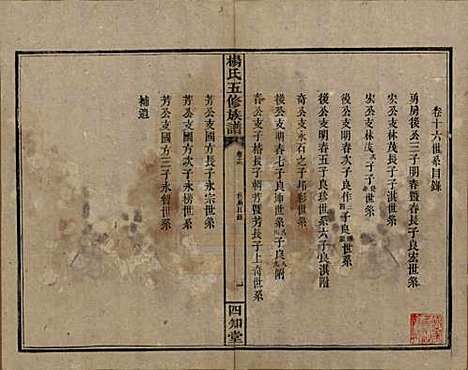 卷十六世系目錄
勇房後公三子明春暨長子良宏世系
宏公支林茂長子
宏公支林茂次子
後公支明春四子良作世系
奇公支永石之子邦彩世系
後公支明春五子良珍世系六子良淇附
後公支明春七子良坤世系
春公支子朝芳暨芳長子上奇世系
楊氏五修族譜
卷十六
世系目錄
一
四知堂
芳公支國方長子永宗世系
芳公支國方次子永
芳公支國方三子永智世系
補遺